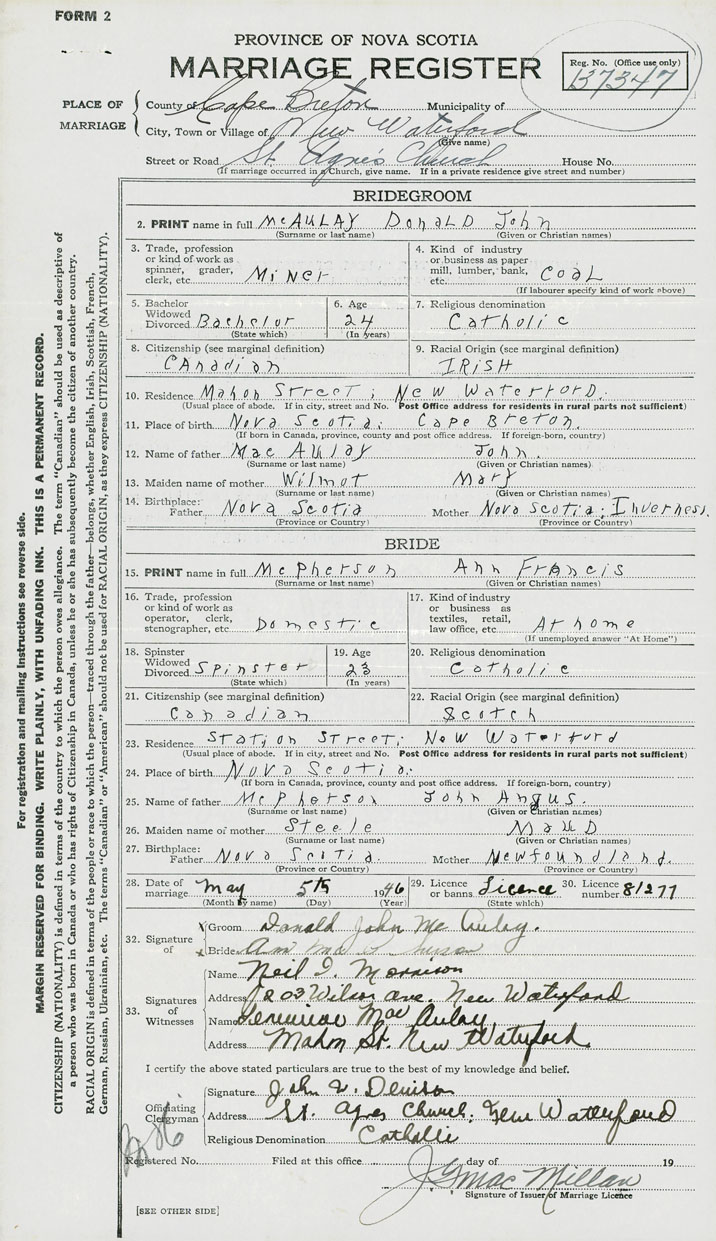 FORM 2
PROVINCE OF NOVA SCOTIA
MARRIAGE REGISTER
Reg. No. (Office use only)
137347
PLACE OF MARRIAGE
County of Cape Breton Municipality of
City, Town or Village of New Waterford
(Give name)
Street or Road St. Agnes Church House No.
(If marriage occurred in a Church, give name. If in a private residence give street and number)
BRIDEGROOM
2. PRINT name in full McAULAY DONALD John
(Surname or last name) (Given or Christian names)
3. Trade, profession or kind of work as spinner, grader, clerk, etc. Miner
4. Kind of industry or business as paper mill, lumber, bank, etc. COAL
(If labourer specify kind of work above)
5. Bachelor Widowed Divorced Bachelor
(State which)
6. Age 24
(In years)
7. Religious denomination
Catholic
8. Citizenship (see marginal definition)
CAnadian
9. Racial Origin (see marginal definition)
IRISH
10. Residence Mahon Street; New Waterford.
(Usual place of abode. If in city, street and No. Post Office address for residents in rural parts not sufficient)
11. Place of birth Nova Scotia; Cape Breton.
(If born in Canada, province, county and post office address. If foreign-born, country)
12. Name of father Mac Aulay John.
(Surname or last name) (Given or Christian names)
13. Maiden name of mother Wilmot Mary
(Surname or last name) (Given or Christian names)
14. Birthplace: Father Nova Scotia Mother Nova Scotia; Inverness.
(Province or Country) (Province or Country)
BRIDE
15. PRINT name in full McPherson Ann Francis
(Surname or last name) (Given or Christian names)
16. Trade, profession or kind of work as operator, clerk, stenographer, etc. Domestic
17. Kind of industry or business as textiles, retail, law office, etc. At home
(If unemployed answer "At Home")
18. Spinster Widowed Divorced Spinster
(State which)
19. Age 23
(In years)
20. Religious denomination
Catholic
21. Citizenship (see marginal definition)
Canadian
22. Racial Origin (see marginal definition)
Scotch
23. Residence Station Street; New Waterford
(Usual place of abode. If in city, street and No. Post Office address for residents in rural parts not sufficient)
24. Place of birth Nova Scotia.
(If born in Canada, province, county and post office address. If foreign-born, country)
25. Name of father McPherson John Angus.
(Surname or last name) (Given or Christian names)
26. Maiden name of mother Steele Maud
(Surname or last name) (Given or Christian names)
27. Birthplace: Father Nova Scotia. Mother Newfoundland.
(Province or Country) (Province or Country)
28. Date of marriage May 5th 1946
(Month by name) (Day) (Year)
29. Licence or banns Licence
(State which)
30. Licence number 81277
32. Signature of
x Groom Donald John Mc Aulay.
x Bride Ann
33. Signatures of Witnesses
Name Neil I. Morrison
Address 1203 Wilson Ave. New Waterford
Name Mac Aulay
Address Mahon St. New Waterford.
I certify the above stated particulars are true to the best of my knowledge and belief.
Officiating Clergyman
Signature John V. Denison
Address St. Agnes Church; New Waterford
Religious Denomination Catholic
Registered No. Filed at this office day of 19
MacMillan
Signature of Issuer of Marriage Licence
[SEE OTHER SIDE]
For registration and mailing instructions see reverse side.
MARGIN RESERVED FOR BINDING. WRITE PLAINLY, WITH UNFADING INK. THIS IS A PERMANENT RECORD.
CITIZENSHIP (NATIONALITY) is defined in terms of the country to which the person owes allegiance. The term "Canadian" should be used as descriptive of
a person who was born in Canada or who has rights of Citizenship in Canada, unless he or she has subsequently become the citizen of another country.
RACIAL ORIGIN is defined in terms of the people or race to which the person—traced through the father—belongs, whether English, Irish, Scottish, French,
German, Russian, Ukrainian, etc. The terms "Canadian" or "American" should not be used for RACIAL ORIGIN, as they express CITIZENSHIP (NATIONALITY).